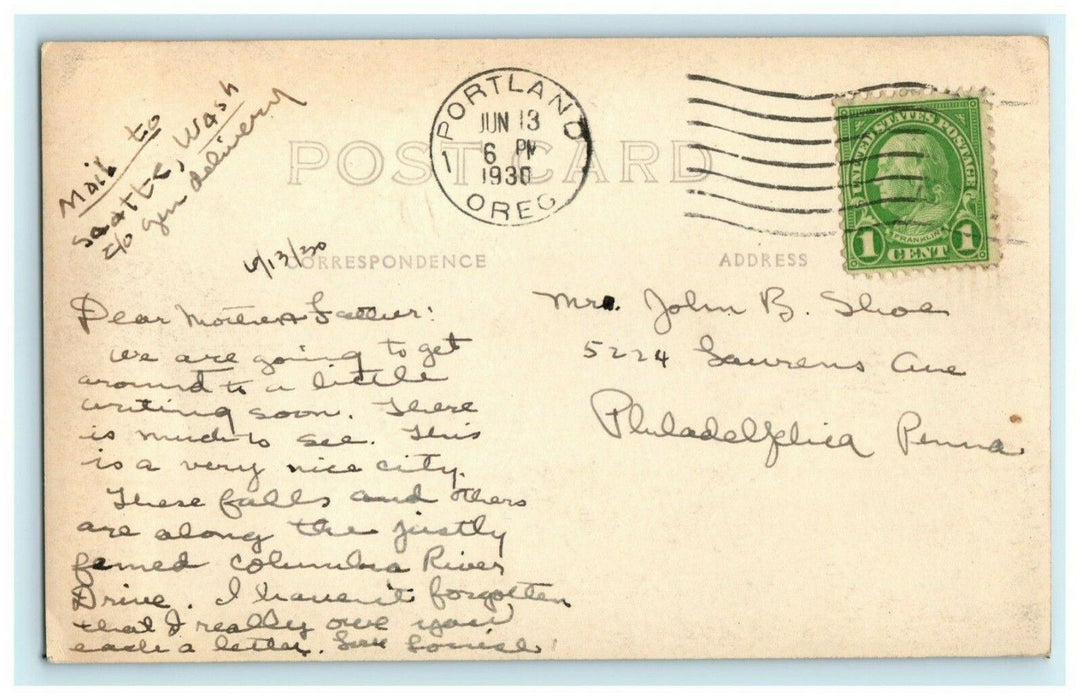 Mail to
Seattle, Wash
c/o gen delivery
6/13/30
PORTLAND
JUN 13
6 PM
1930
OREG
1
POST CARD
CORRESPONDENCE
ADDRESS
UNITED STATES POSTAGE
FRANKLIN
1 CENT 1
Dear Mother & Father:
We are going to get
around to a little
writing soon. There
is much to see. This
is a very nice city.
These falls and others
are along the justly
famed Columbia River
Drive. I haven't forgotten
that I really owe you
each a letter. Louise
Mrs. John B. Shoe
5224 Laurens Ave
Philadelphia Penna.